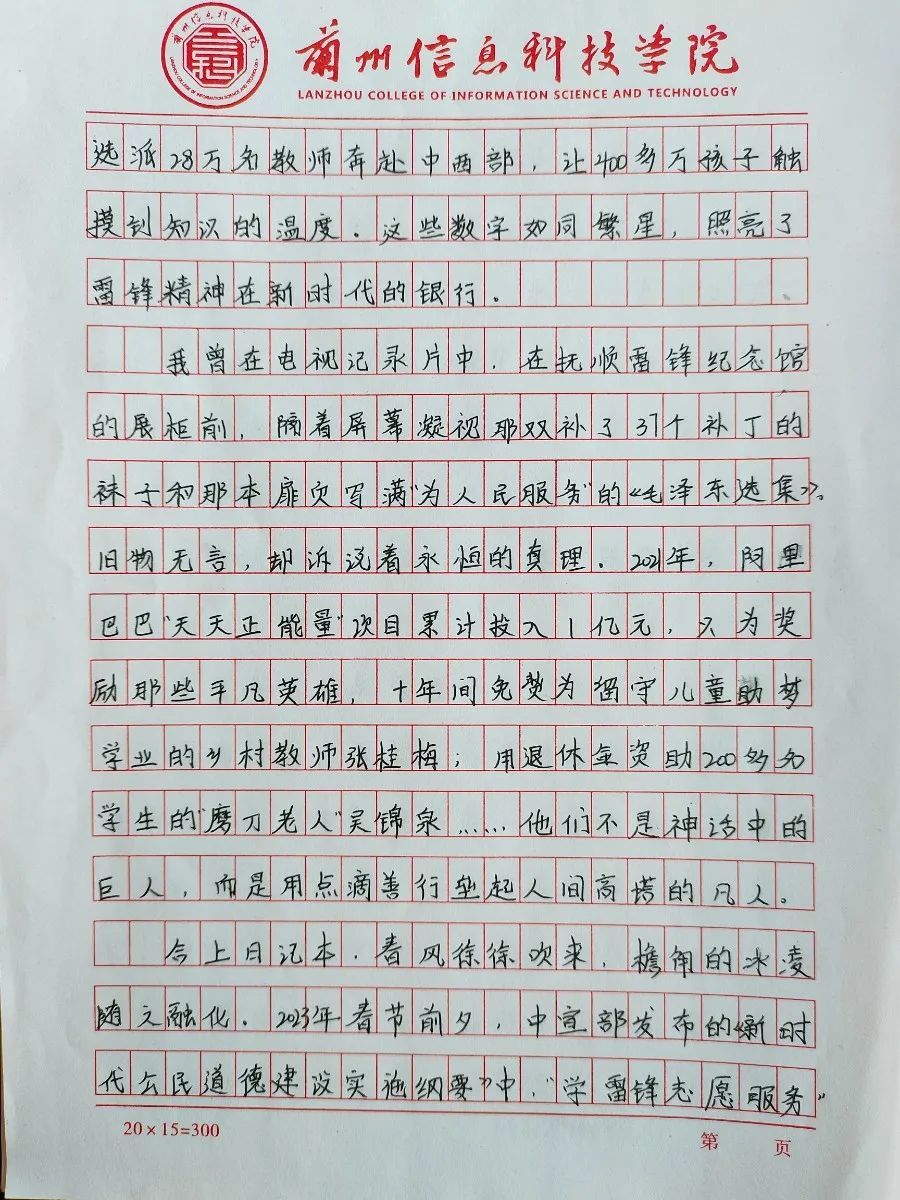 兰州信息科技学院
LANZHOU COLLEGE OF INFORMATION SCIENCE AND TECHNOLOGY
选派28万名教师奔赴中西部，让400多万孩子触
摸到知识的温度。这些数字如同繁星，照亮了
雷锋精神在新时代的银行。
我曾在电视记录片中，在抚顺雷锋纪念馆
的展柜前，隔着屏幕凝视那双补了37个补丁的
袜子和那本扉页写满“为人民服务”的《毛泽东选集》。
旧物无言，却诉说着永恒的真理。2021年，阿里
巴巴“天天正能量”项目累计投入1亿元，只为奖
励那些平凡英雄，十年间免费为留守儿童助梦
学业的乡村教师张桂梅；用退休金资助200多名
学生的“磨刀老人”吴锦泉……他们不是神话中的
巨人，而是用点滴善行垒起人间高塔的凡人。
合上日记本，春风徐徐吹来，檐角的冰凌
随之融化。2023年春节前夕，中宣部发布的《新时
代公民道德建设实施纲要》中，“学雷锋志愿服务”
20×15=300
第 页